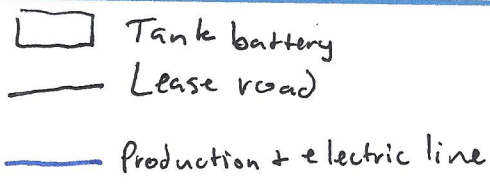 Tank battery
Lease road
Production + electric line